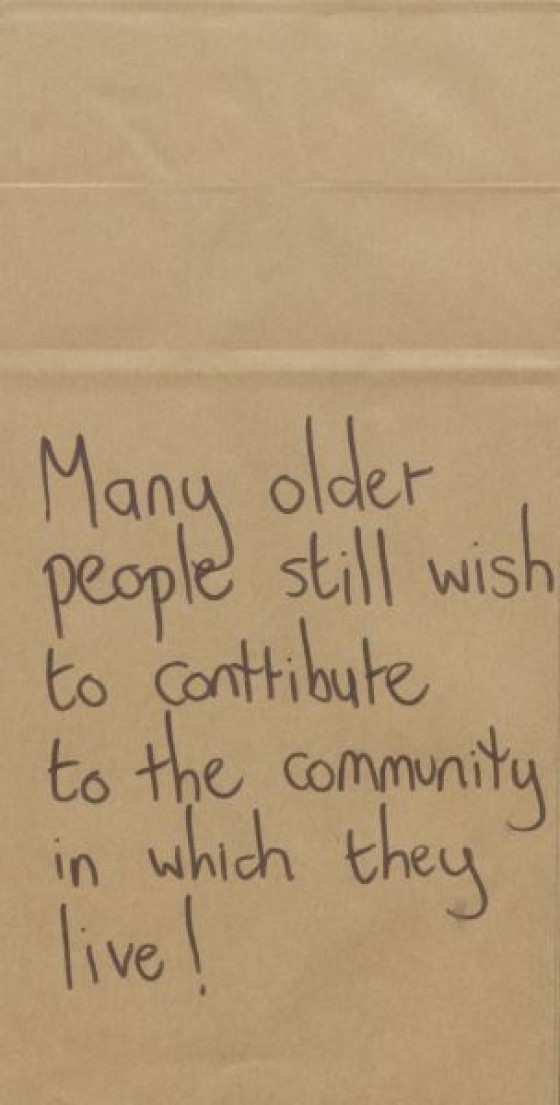 Many older
people still wish
to conttibute
to the community
in which they
live!